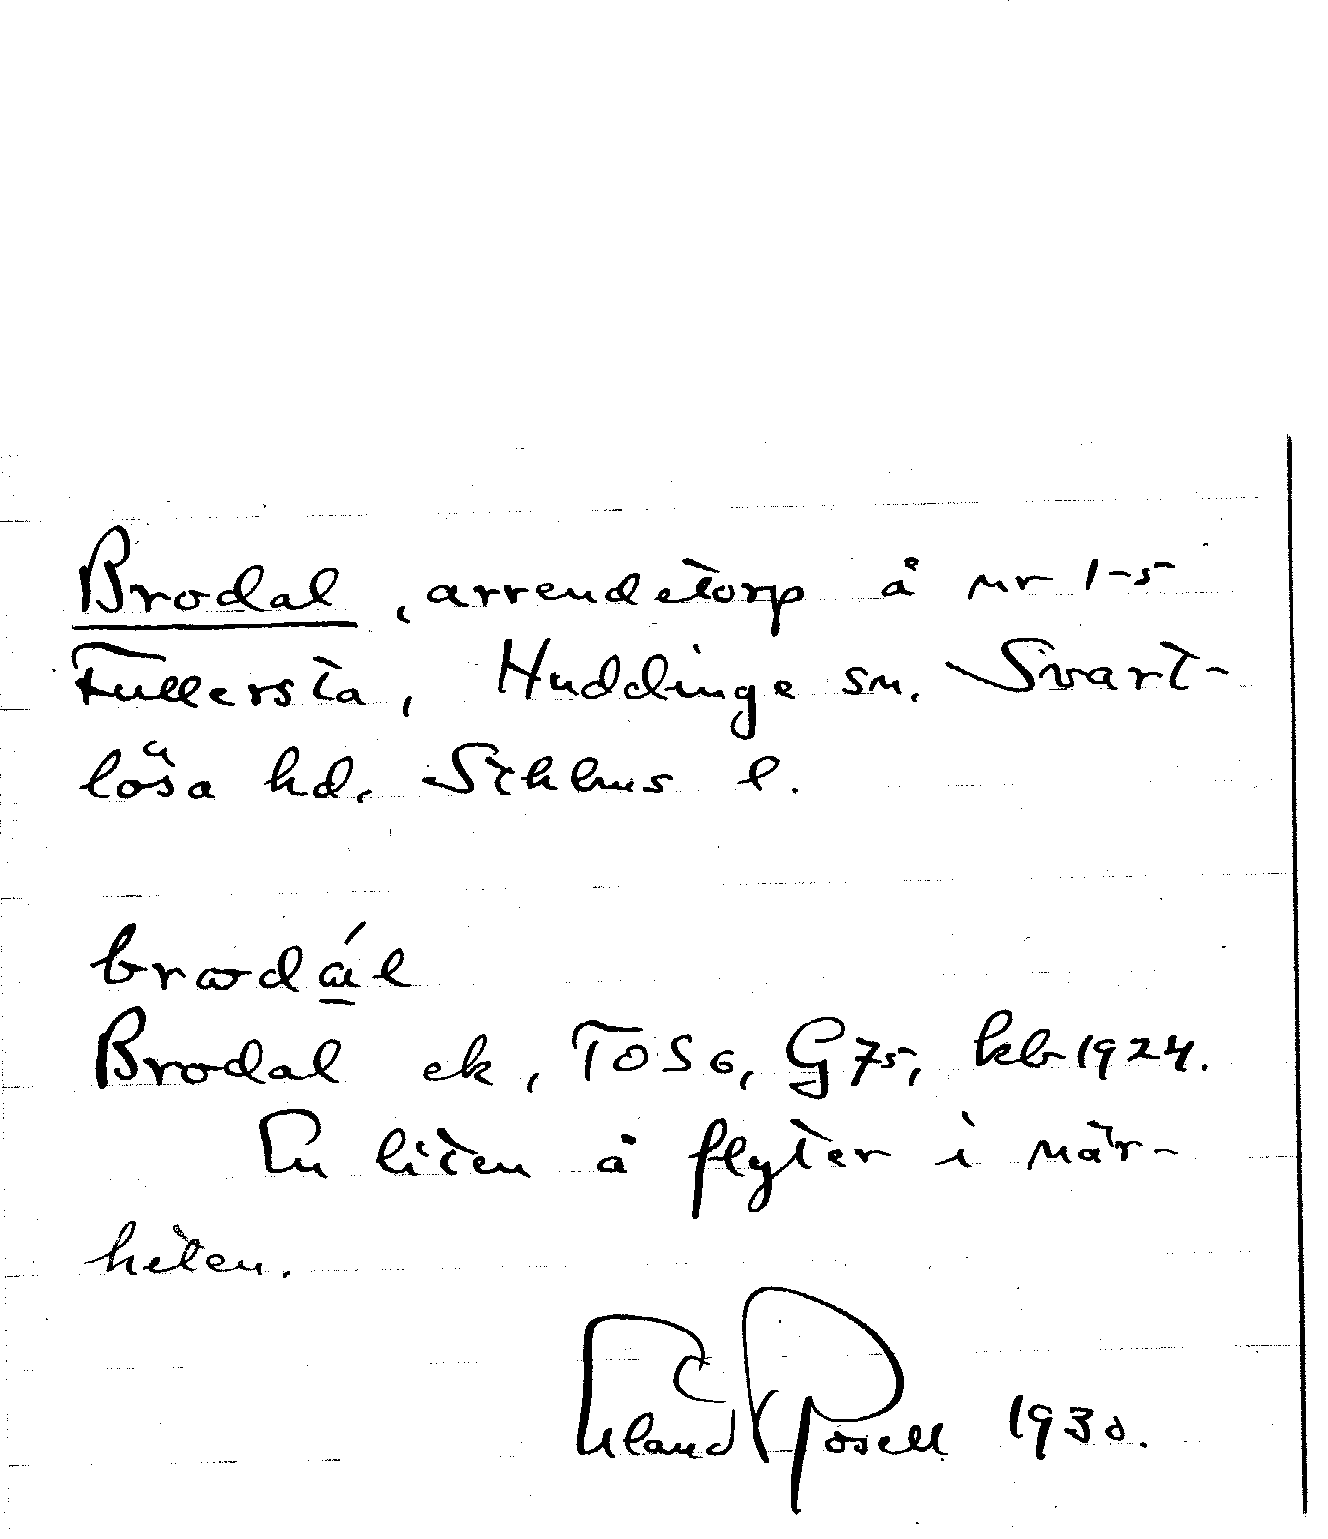 Brodal, arrendetorp å nr 1-5
Fullersta, Huddinge sn. Svart-
lösa hd. Sthlms l.
Brodal ek, TOS6, G75, kb 1924.
En liten å flyter i när-
heten.
Erland Rosell 1930.